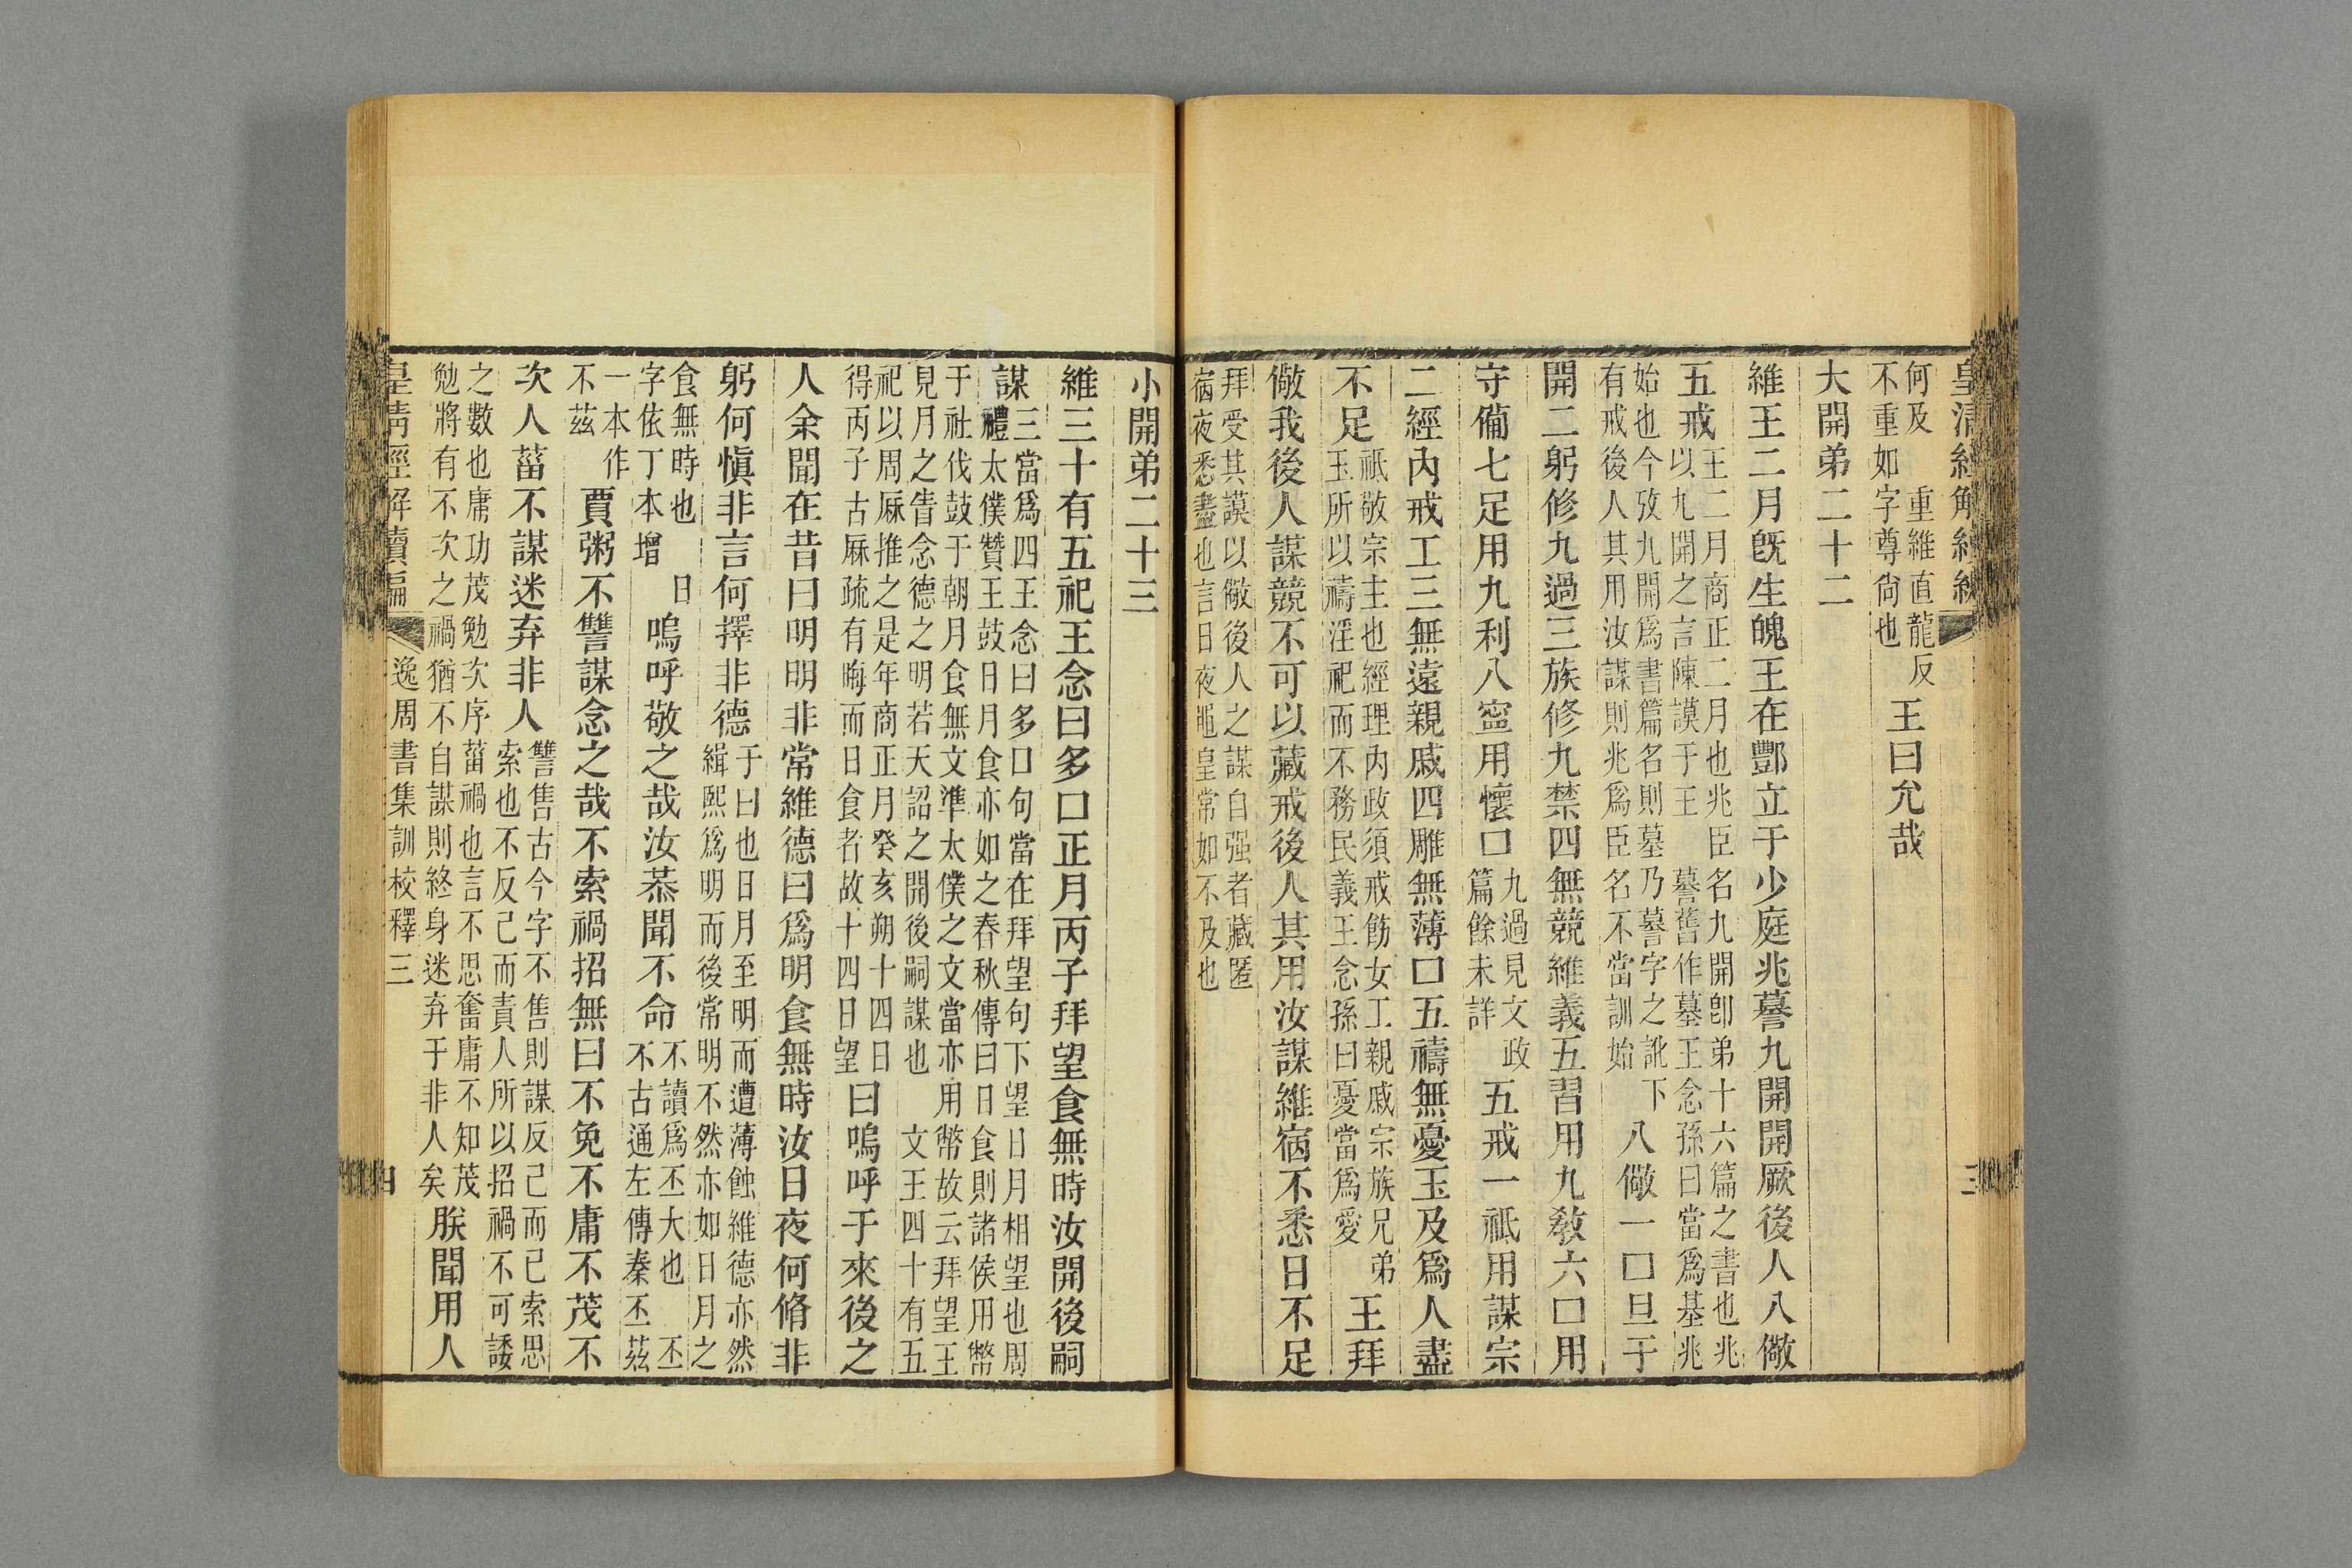 皇清經解續編
三
何及　重維直龍反
不重如字尊尙也
王曰允哉
大開弟二十二
維王二月旣生魄王在酆立于少庭兆謩九開開厥後人八儆
五戒
王二月商正二月也兆臣名九開卽弟十六篇之書也兆
以九開之言陳謨于王　謩舊作墓王念孫曰當爲基兆
始也今攷九開爲書篇名則墓乃謩字之訛下
有戒後人其用汝謀則兆爲臣名不當訓始
八儆一口旦于
開二躬修九過三族修九禁四無競維義五習用九敎六口用
守備七足用九利八寍用懷口
九過見文政
篇餘未詳
五戒一祗用謀宗
二經內戒工三無遠親戚四雕無薄口五禱無憂玉及爲人盡
不足
祗敬宗主也經理內政須戒飭女工親戚宗族兄弟
玉所以禱淫祀而不務民義王念孫曰憂當爲愛
王拜
儆我後人謀競不可以藏戒後人其用汝謀維宿不悉日不足
拜受其謨以儆後人之謀自强者藏匿
宿夜悉盡也言日夜黽皇常如不及也
小開弟二十三
維三十有五祀王念曰多口正月丙子拜望食無時汝開後嗣
謀
三當爲四王念曰多口句當在拜望句下望日月相望也周
禮太僕贊王鼓日月食亦如之春秋傳曰日食則諸侯用幣
于社伐鼓于朝月食無文準太僕之文當亦用幣故云拜望王
見月之眚念德之明若天詔之開後嗣謀也　文王四十有五
祀以周厤推之是年商正月癸亥朔十四日
得丙子古厤疏有晦而日食者故十四日望
曰嗚呼于來後之
人余聞在昔曰明明非常維德曰爲明食無時汝日夜何脩非
躬何愼非言何擇非德
于曰也日月至明而遭薄蝕維德亦然
緝熙爲明而後常明不然亦如日月之
食無時也　日
字依丁本增
嗚呼敬之哉汝恭聞不命
不讀爲丕大也　丕
不古通左傳秦丕茲
一本作
不茲
賈粥不讐謀念之哉不索禍招無曰不免不庸不茂不
次人菑不謀迷弃非人
讐售古今字不售則謀反己而已索思
索也不反己而責人所以招禍不可諉
之數也庸功茂勉次序菑禍也言不思奮庸不知茂
勉將有不次之禍猶不自謀則終身迷弃于非人矣
朕聞用人
皇清經解續編
逸周書集訓校釋三
四